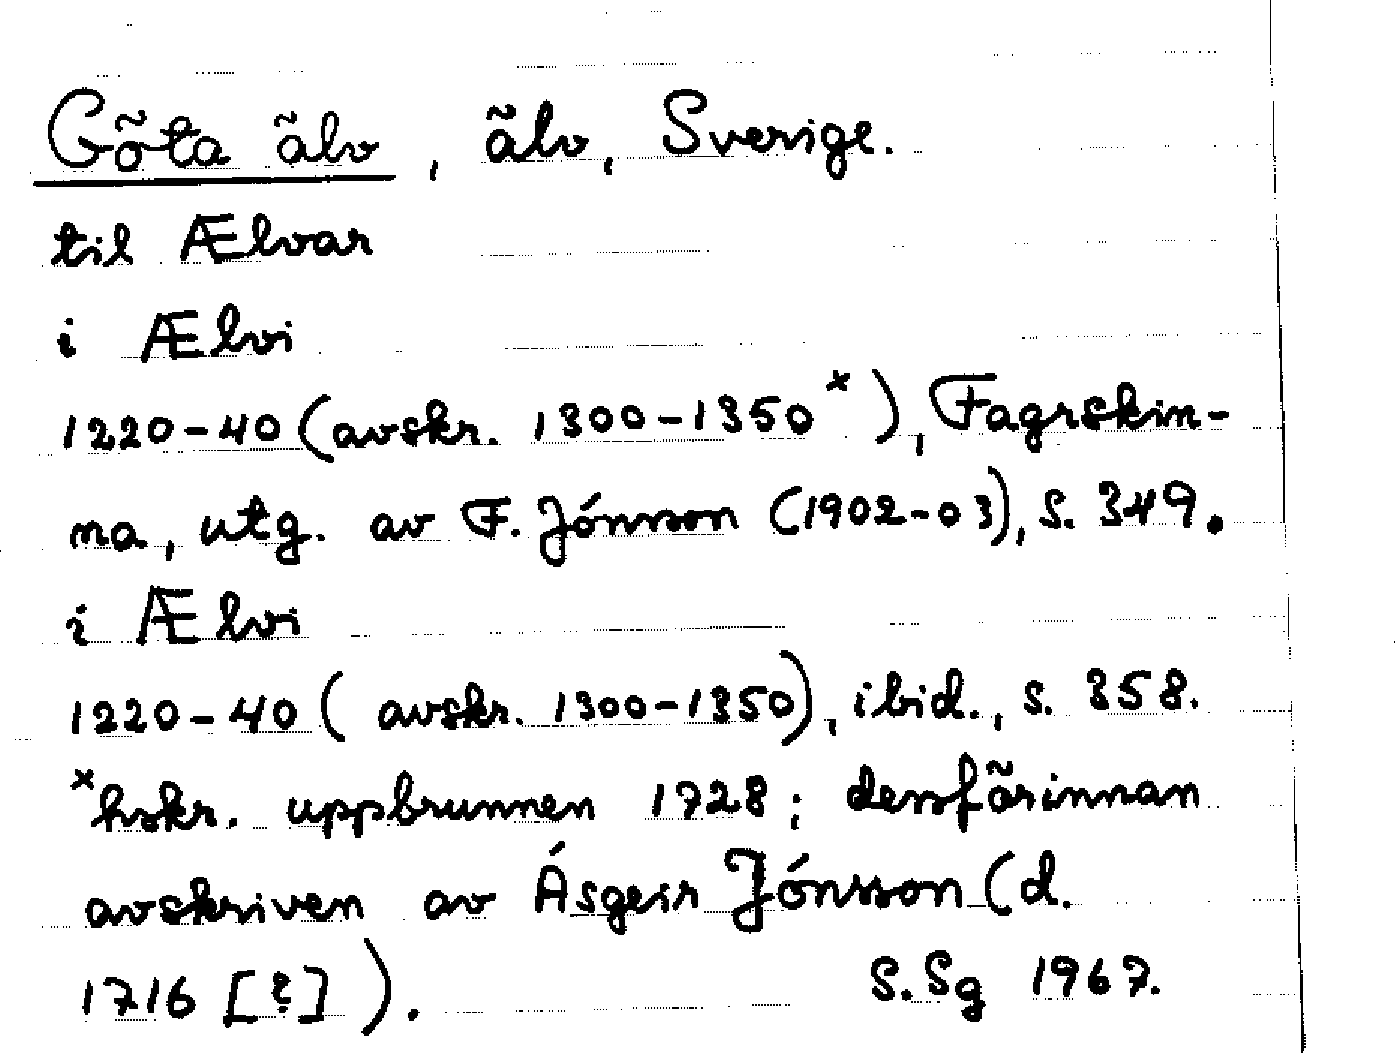 Göta älv, älv, Sverige.
til Ælvar
i Ælvi
1220-40 (avskr. 1300-1350ˣ), Fagrskin-
na, utg. av F. Jónsson (1902-03), s. 349.
i Ælvi
1220-40 (avskr. 1300-1350), ibid., s. 358.
ˣhskr. uppbrunnen 1728; dessförinnan
avskriven av Ásgeir Jónsson (d.
1716 [?]). S.Sg 1967.